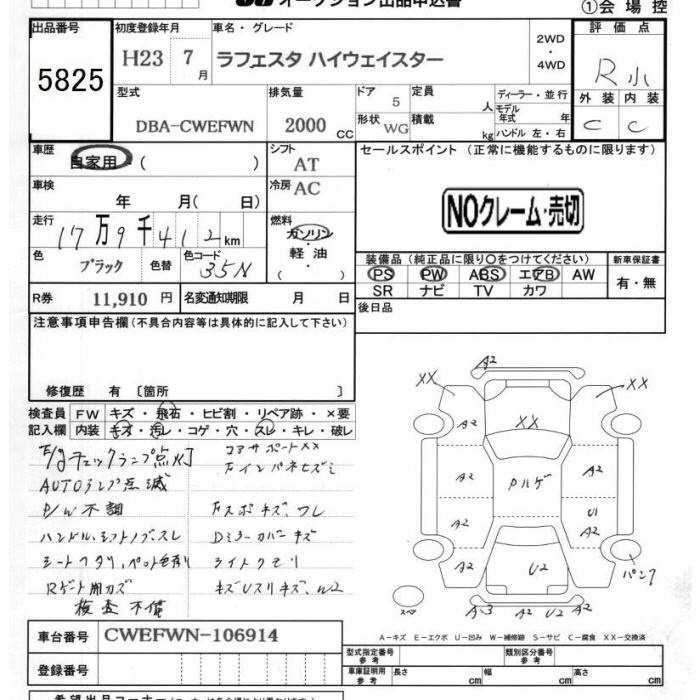 オークション出品申込書
①会場控
出品番号
5825
初度登録年月
H23 7月
車名・グレード
ラフェスタ ハイウェイスター
2WD
・
4WD
評価点
R 小
外装 内装
C C
型式
DBA-CWEFWN
排気量
2000 CC
ドア 5
形状 WG
定員 人
積載 kg
ディーラー・並行
モデル年式 年
ハンドル 左・右
車歴
自家用・( )
シフト AT
セールスポイント (正常に機能するものに限ります)
NOクレーム・売切
車検
年 月( 日)
冷房 AC
走行
17万9千412km
燃料
ガソリン
軽油
( ・ )
色 ブラック 色替
色コード 35N
装備品 (純正品に限り○をつけてください)
PS PW ABS エアB AW
SR ナビ TV カワ
新車保証書
有・無
R券 11,910 円
名変通知期限 月 日
後日品
注意事項申告欄 (不具合内容等は具体的に記入して下さい)
修復歴 有 〔箇所 〕
検査員記入欄
FW キズ・飛石・ヒビ割・リペア跡・×要
内装 キズ・汚レ・コゲ・穴・スレ・キレ・破レ
E/gチェックランプ点灯
コアサポートXX
AUTOランプ点滅
P/W不調
ハンドル、シフトノブスレ
Dミラーカバーキズ
ライトクモリ
Rゲート用カズ
キズUスリキズ、W2
検査不備
A2
XX
XX
A2
XX
A2
A2
Pルゲ
A2
A2
U1
A2
A2
A2
U2
パンク
スペア
A3 A2 U2 A2
A－キズ E－エクボ U－凹み W－補修跡 S－サビ C－腐食 XX－交換済
車台番号 CWEFWN-106914
登録番号
型式指定番号 参考
類別区分番号 参考
車庫証明用 参考
長さ cm
幅 cm
高さ cm